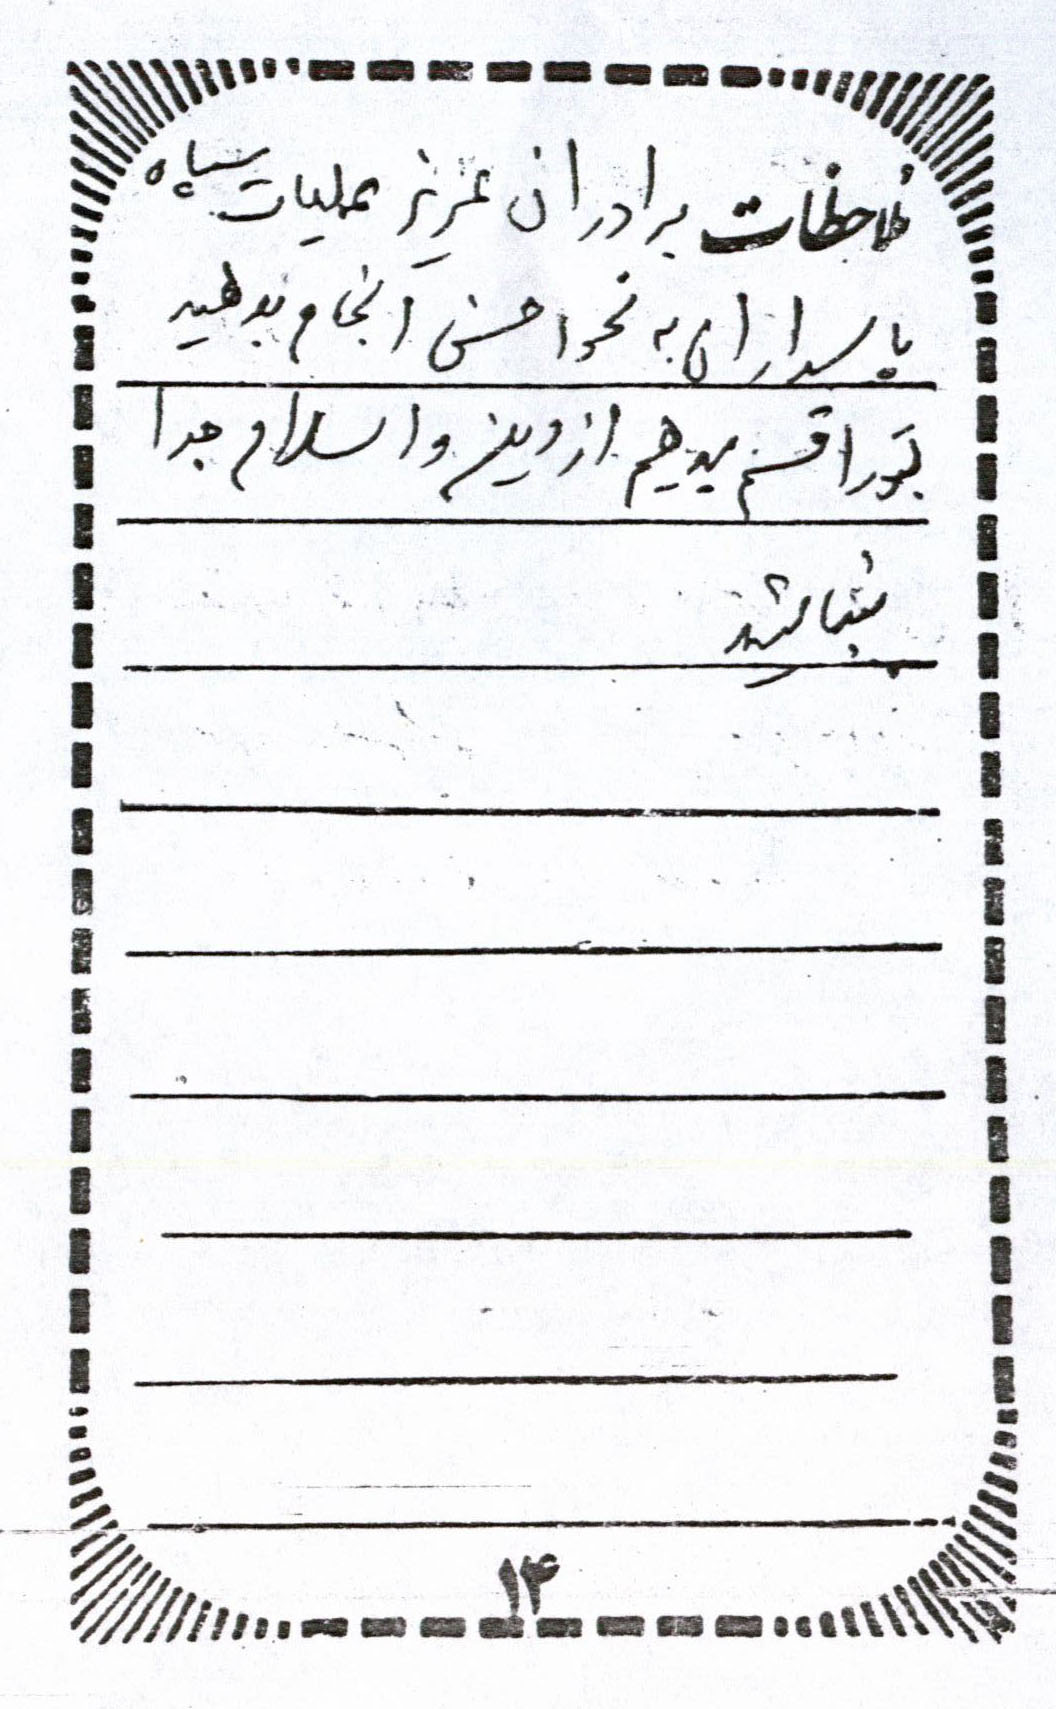 ملاحظات برادران عزیز عملیات سپاه
پاسداران به نحو احسن انجام بدهید
قسم میدهم از دین و اسلام جدا
نباشید
۱۴